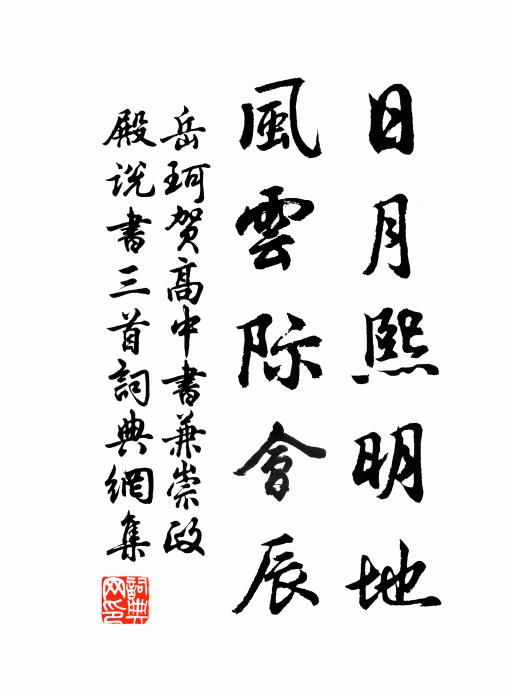 日月熙明地
風雲际會辰
岳珂贺高中書兼崇政
殿説書三首詞典網集
詞典网印